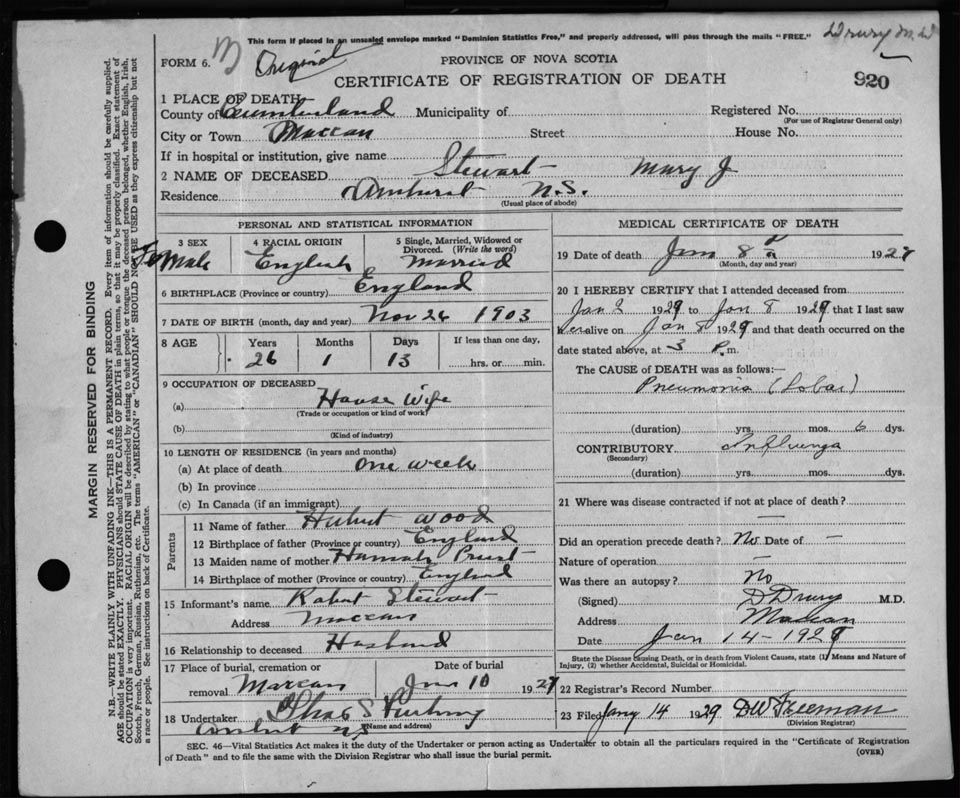 This form if placed in an unsealed envelope marked "Dominion Statistics Free," and properly addressed, will pass through the mails "FREE."
Drury M.D
FORM 6.
Original
PROVINCE OF NOVA SCOTIA
CERTIFICATE OF REGISTRATION OF DEATH
920
1 PLACE OF DEATH
County of Cumberland Municipality of Registered No.
(For use of Registrar General only)
City or Town Maccan Street House No.
If in hospital or institution, give name
2 NAME OF DECEASED Stewart Mary J
Residence Amherst N.S.
(Usual place of abode)
PERSONAL AND STATISTICAL INFORMATION
3 SEX
Female
4 RACIAL ORIGIN
English
5 Single, Married, Widowed or
Divorced. (Write the word)
Married
6 BIRTHPLACE (Province or country) England
7 DATE OF BIRTH (month, day and year) Nov 26 1903
8 AGE Years Months Days If less than one day,
26 1 13 hrs. or min.
9 OCCUPATION OF DECEASED
(a) House Wife
(Trade or occupation or kind of work)
(b)
(Kind of industry)
10 LENGTH OF RESIDENCE (in years and months)
(a) At place of death One week
(b) In province
(c) In Canada (if an immigrant)
Parents
11 Name of father Hubert Wood
12 Birthplace of father (Province or country) England
13 Maiden name of mother Hannah Priest
14 Birthplace of mother (Province or country) England
15 Informant's name Robert Stewart
Address Maccan
16 Relationship to deceased Husband
17 Place of burial, cremation or Date of burial
removal Maccan Jan 10 1929
18 Undertaker Chas S
(Name and address)
Amherst NS
MEDICAL CERTIFICATE OF DEATH
19 Date of death Jan 8 1929
(Month, day and year)
20 I HEREBY CERTIFY that I attended deceased from
Jan 2 1929 to Jan 8 1929 that I last saw
her alive on Jan 8 1929 and that death occurred on
date stated above, at 3 P.m.
The CAUSE of DEATH was as follows:—
Pneumonia (Lobar)
(duration) yrs. mos. 6 dys.
CONTRIBUTORY Influenza
(Secondary)
(duration) yrs. mos. dys.
21 Where was disease contracted if not at place of death?
Did an operation precede death? No Date of —
Nature of operation —
Was there an autopsy? No
(Signed) D Drury M.D.
Address Maccan
Date Jan 14 - 1929
State the Disease causing Death, or in death from Violent Causes, state (1) Means and Nature of
Injury, (2) whether Accidental, Suicidal or Homicidal.
22 Registrar's Record Number
23 Filed Jany 14 1929 DW Freeman
(Division Registrar)
SEC. 46—Vital Statistics Act makes it the duty of the Undertaker or person acting as Undertaker to obtain all the particulars required in the "Certificate of Registration
of Death" and to file the same with the Division Registrar who shall issue the burial permit.
(OVER)
MARGIN RESERVED FOR BINDING
N.B.—WRITE PLAINLY WITH UNFADING INK—THIS IS A PERMANENT RECORD. Every item of information should be carefully supplied.
AGE should be stated EXACTLY. PHYSICIANS should STATE CAUSE OF DEATH in plain terms, so that it may be properly classified. Exact statement of
OCCUPATION is very important. RACIAL ORIGIN will be described by stating to what people or tongue the deceased person belonged, whether English, Irish,
Scotch, French, German, Russian, Ruthenian, etc. The terms "AMERICAN" or "CANADIAN" SHOULD NOT BE USED as they express citizenship but not
a race or people. See instructions on back of Certificate.